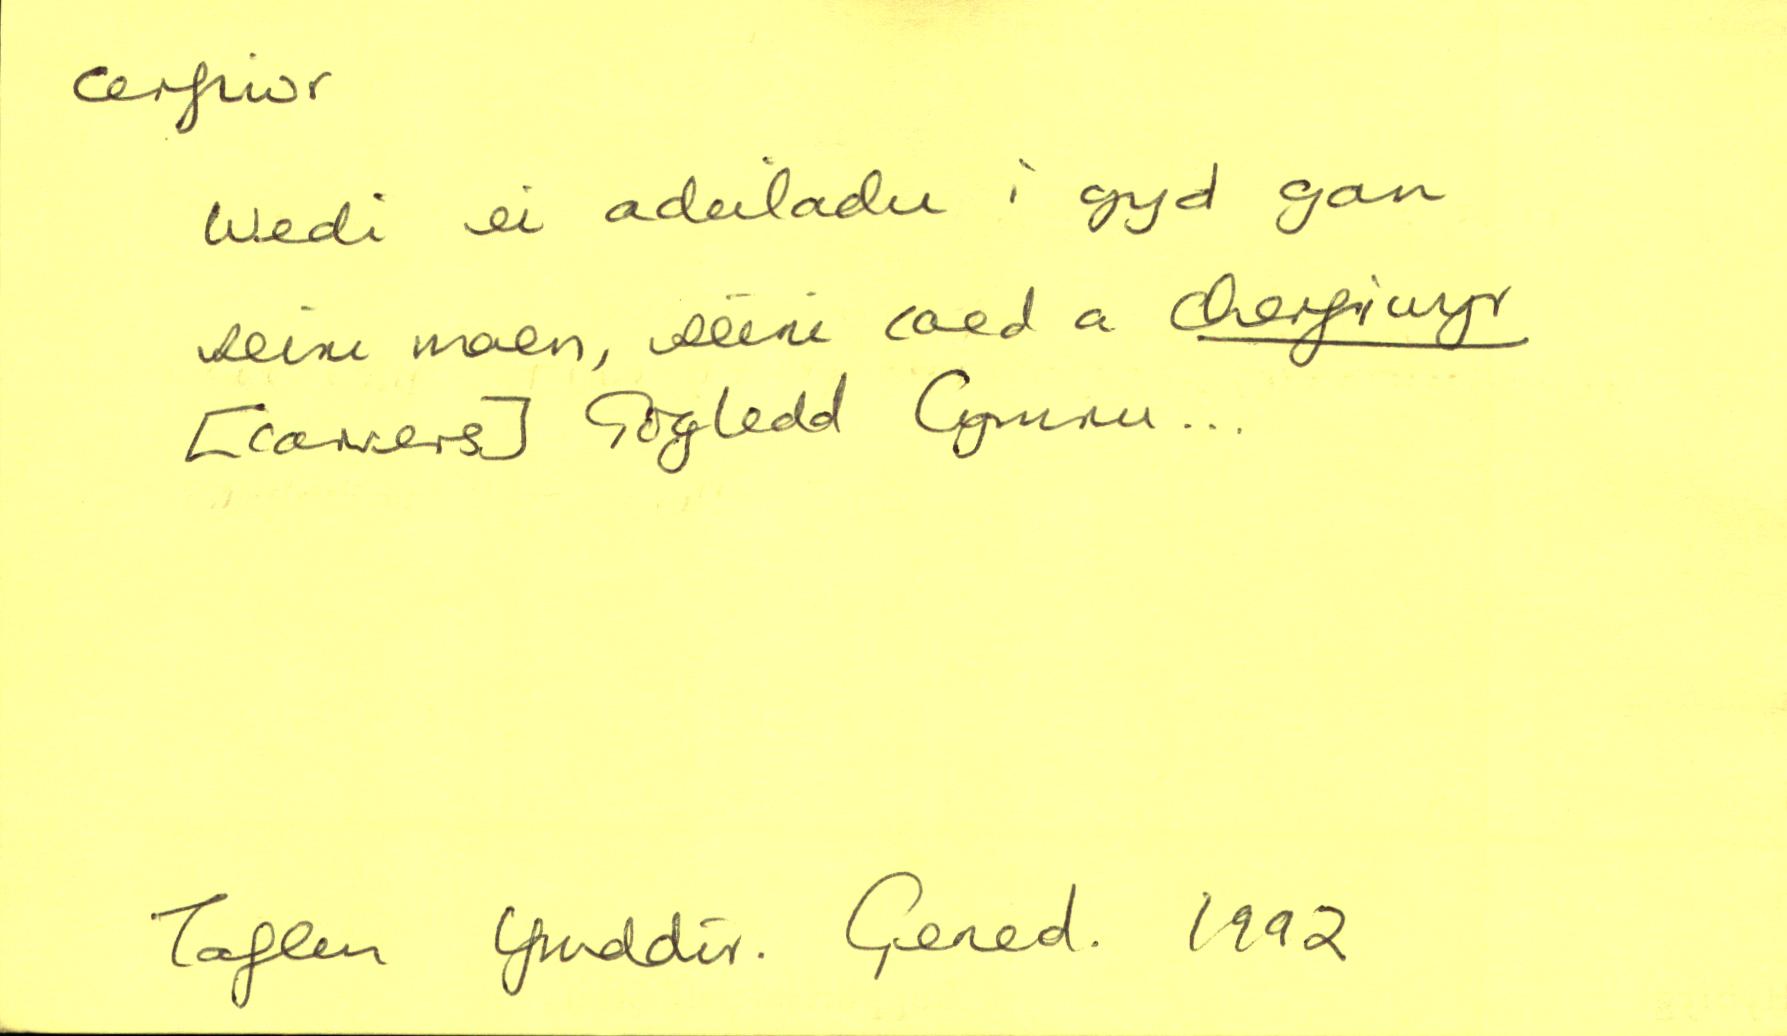 cerfiwr
Wedi ei adeiladu i gyd gan
seiri maen, seiri coed a cherfiwyr
[carvers] Gogledd Cymru...
Taflen Ymddir. Gened. 1992